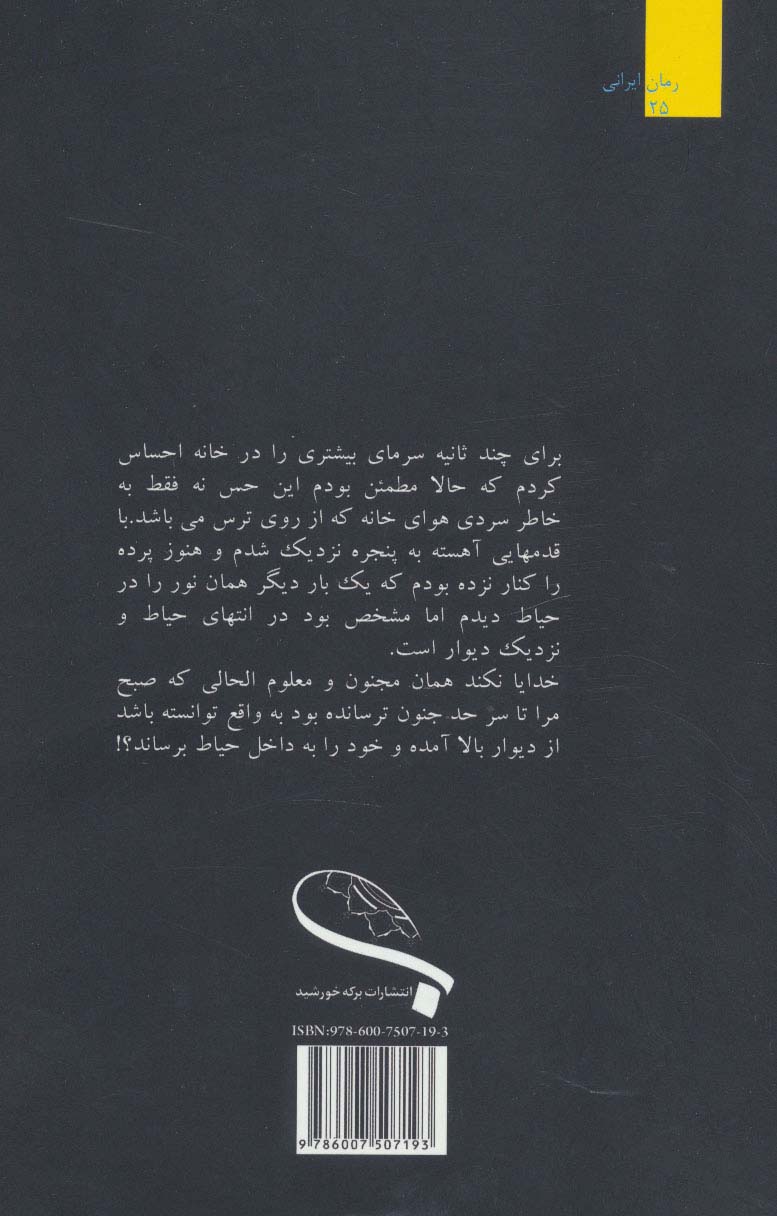 رمان ایرانی
۲۵
برای چند ثانیه سرمای بیشتری را در خانه احساس
کردم که حالا مطمئن بودم این حس نه فقط به
خاطر سردی هوای خانه که از روی ترس می باشد.با
قدمهایی آهسته به پنجره نزدیک شدم و هنوز پرده
را کنار نزده بودم که یک بار دیگر همان نور را در
حیاط دیدم اما مشخص بود در انتهای حیاط و
نزدیک دیوار است.
خدایا نکند همان مجنون و معلوم الحالی که صبح
مرا تا سر حد جنون ترسانده بود به واقع توانسته باشد
از دیوار بالا آمده و خود را به داخل حیاط برساند؟!
انتشارات برکه خورشید
ISBN:978-600-7507-19-3
9 786007 507193